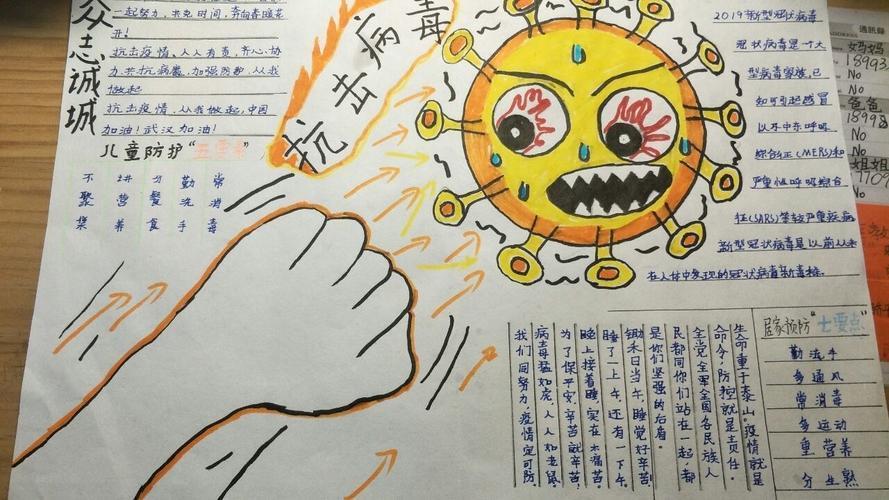 众志诚城
一起努力，共克时间，奔向春暖花
开！
抗击疫情、人人有责，齐心、协
力、共抗病毒，加强防护，从我
做起
抗击疫情，从我做起，中国
加油！武汉加油！
儿童防护“五要素”
不 讲 分 勤 常
聚 营 餐 洗 消
集 养 食 手 毒
抗击病毒
2019新型冠状病毒
冠状病毒是一个大
型病毒家族，已
知可引起感冒
以及中东呼吸
综合征(MERS)和
严重性呼吸综合
征(SARS)等较严重疾病
新型冠状病毒是以前从未
在人体中发现的冠状病毒新毒株。
生命重于泰山。疫情就是
命令，防控就是责任。
全党全军全国各民族人
民都同你们站在一起，都
是你们坚强的后盾。
锄禾日当午，睡觉好辛苦，
睡了一上午，还有一下午。
晚上接着睡，实在太痛苦。
为了保平安，辛苦就辛苦。
病毒猛如虎，人人如老鼠。
我们同努力，疫情定可防
居家预防“七要点”
勤洗手
多通风
常消毒
多运动
重营养
分生熟
通訊錄
妈妈
18993
No
No
爸爸
No
No
姐姐